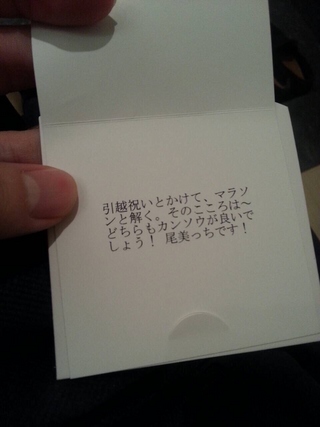 引越祝いとかけて、マラソ
ンと解く。そのこころは～
どちらもカンソウが良いで
しょう！ 尾美っちです！